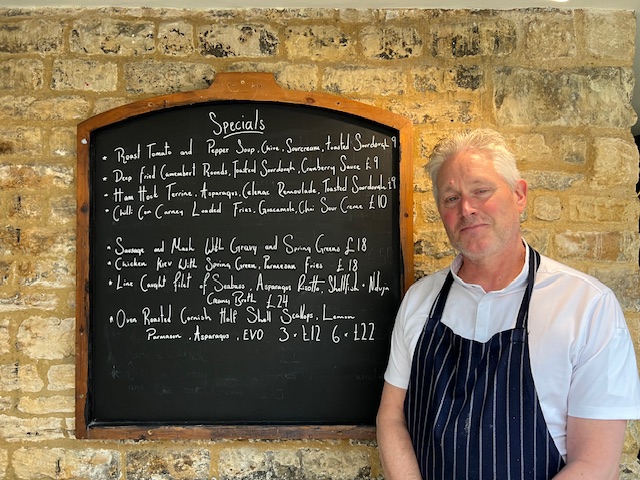 Specials
* Roast Tomato and Pepper Soup, Chive, Sourcream, toasted Sourdough 9
* Deep Fried Camembert Rounds, Toasted Sourdough, Cranberry Sauce £9
* Ham Hock Terrine, Asparagus, Celeriac Remoulade, Toasted Sourdough £9
* Chilli Con Carney Loaded Fries, Guacamole, Chi Sour Creme £10
* Sausage and Mash With Gravy and Spring Greens £18
* Chicken Kiev With Spring Green, Parmesan Fries £18
* Line Caught Fillet of Seabass, Asparagus Risotto, Shellfish + Nduja
Creamy Broth £24
* Oven Roasted Cornish Half Shell Scallops, Lemon
Parmason, Asparagus, EVO 3 = £12 6 = £22